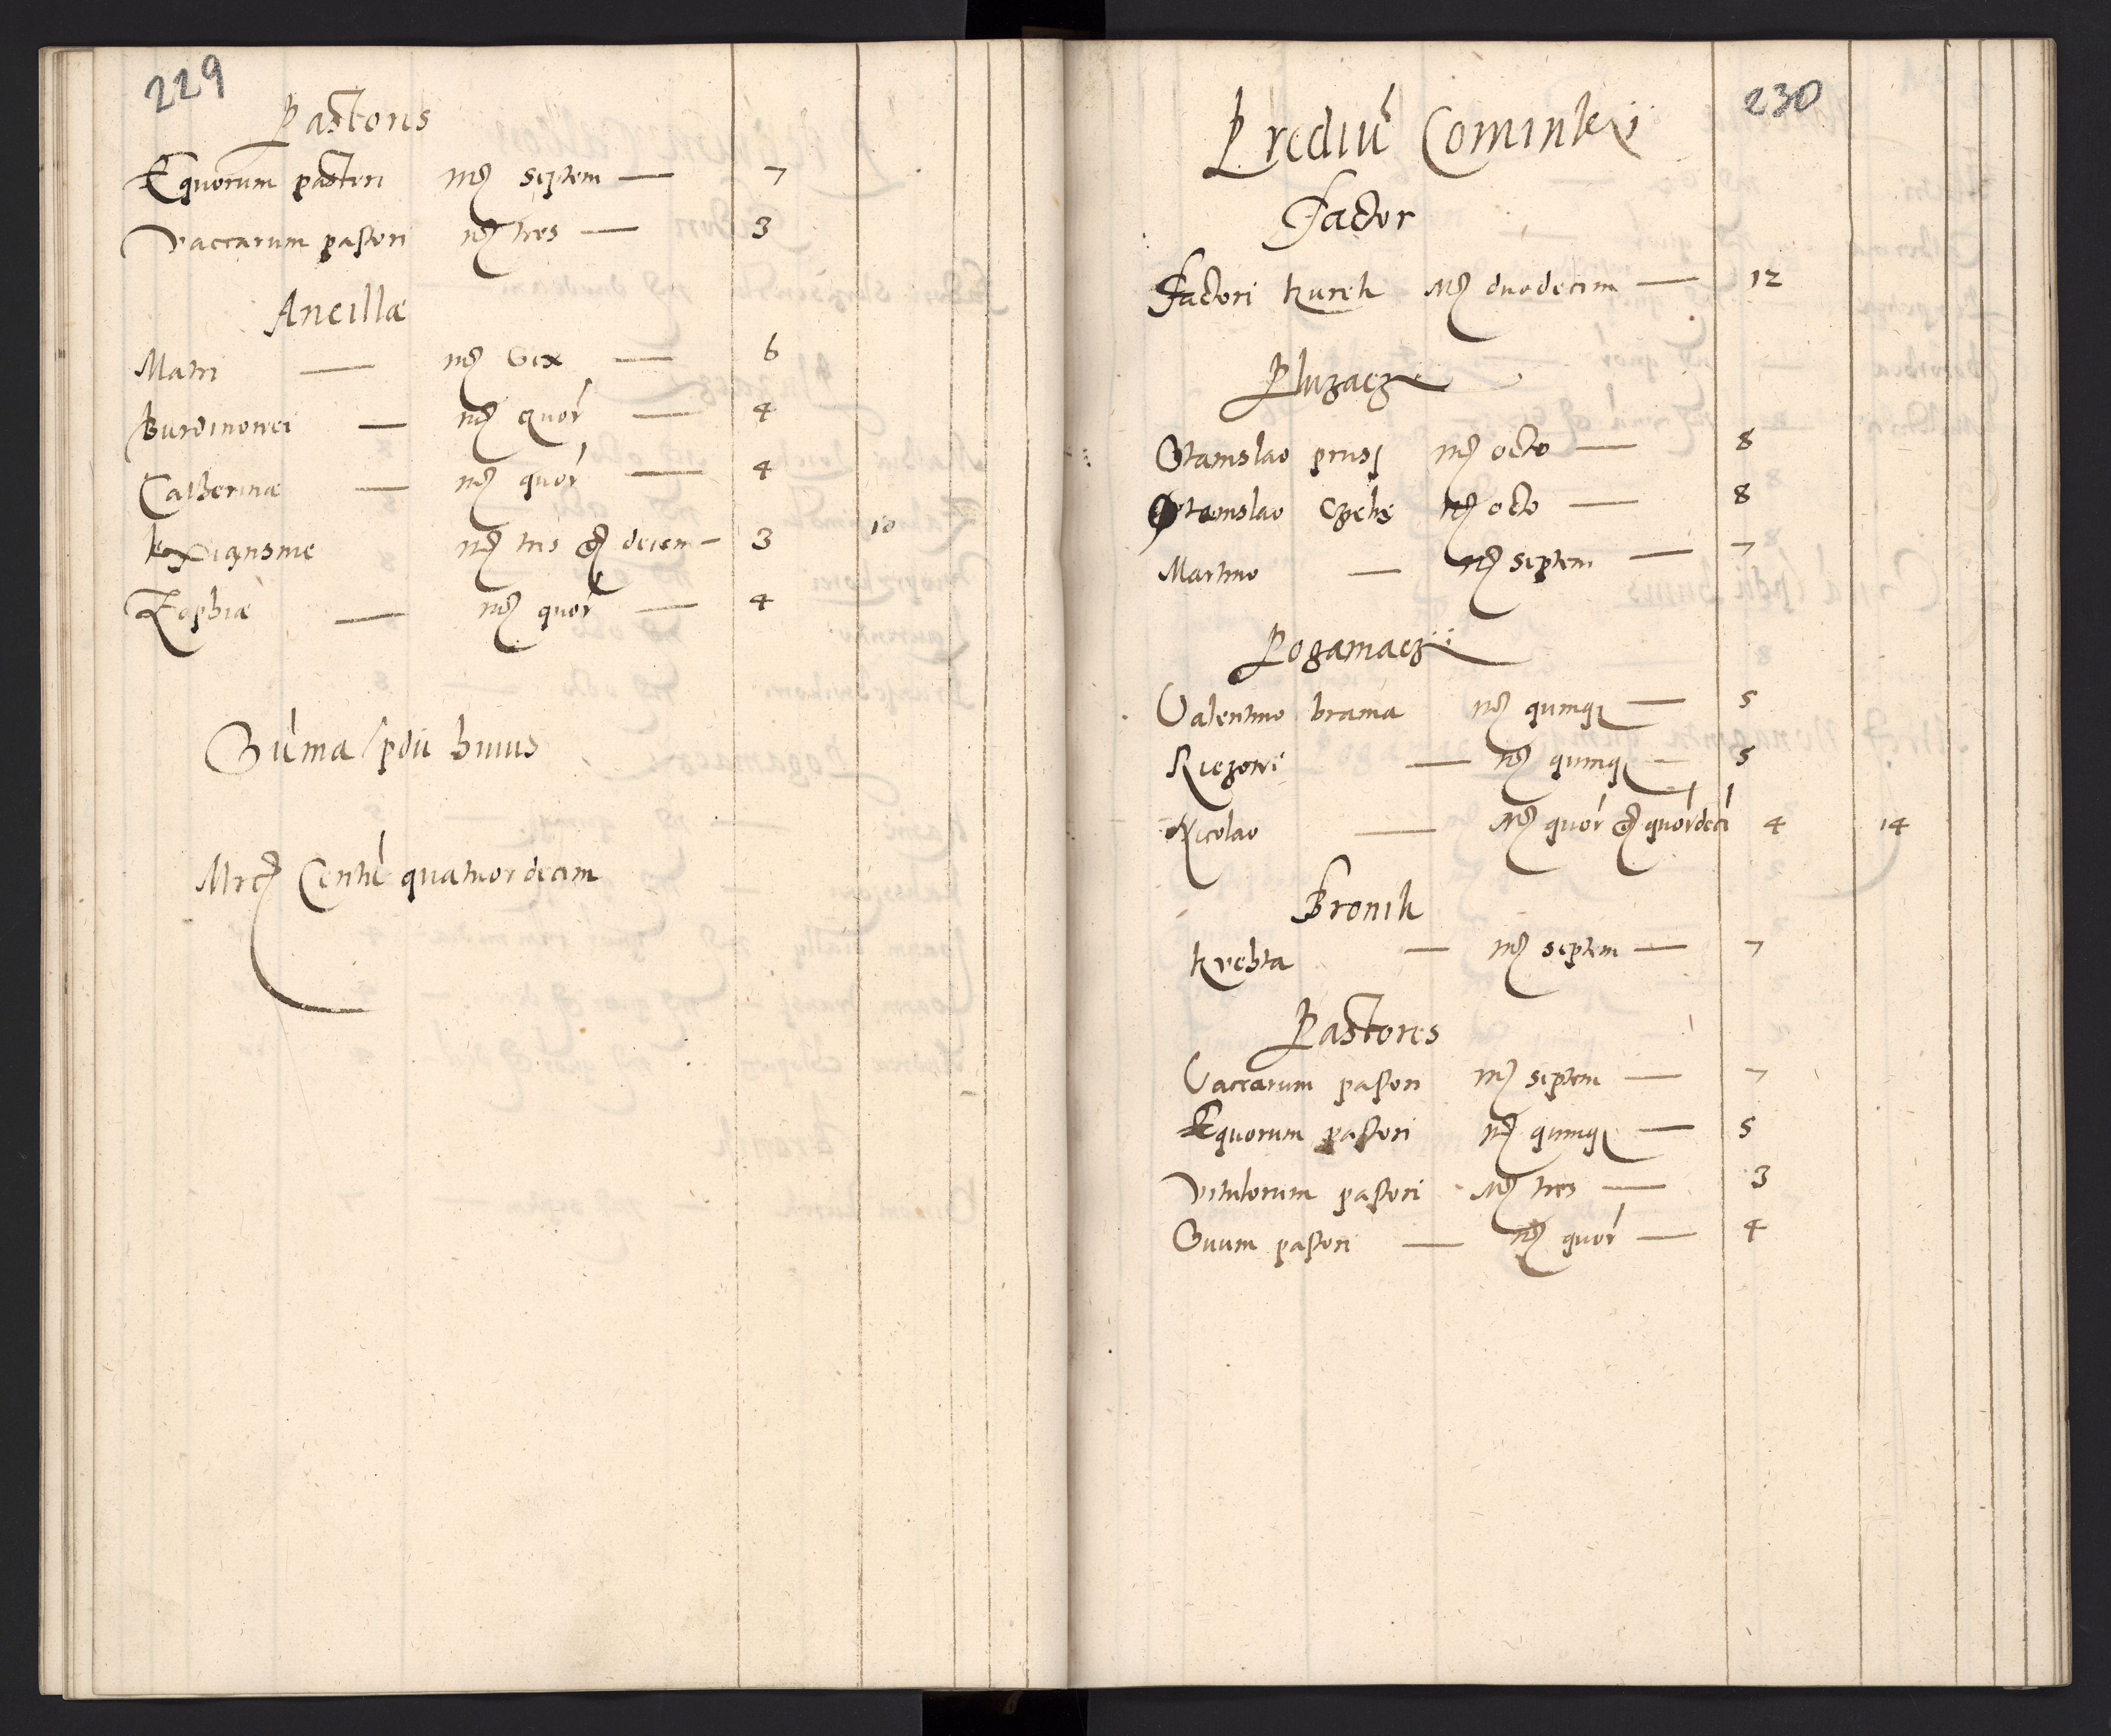 229
Pastores
Equorum pastori mrc septem — 7
Vaccarum pastori mrc tres — 3
Ancillæ
Matri — mrc Sex — 6
Burdinowei — mrc quor — 4
Catherinæ — mrc quor — 4
mrc tris gr decem — 3 10
Zophiæ — mrc quor — 4
Suma pdii huius
Mrc Centu quatuordecim
230
Prediu Cominky
Factor
Factori kurek Mrc duodecim — 12
Pluzacz
Stanislao prusz mrc octo — 8
Stanislao Czehs mrc octo — 8
Martino — mrc septem — 7
Poganiaczii
Valentino brama mrc quinq — 5
Riezowi — mrc quinq — 5
Nicolao — Mrc quor gr quordeci 4 14
Bronik
kvchta — mrc septem — 7
Pastores
Vaccarum pastori mrc septem — 7
Equorum pastori mrc quinq — 5
Vitulorum pastori Mrc tres — 3
Ouum pastori — mrc quor — 4